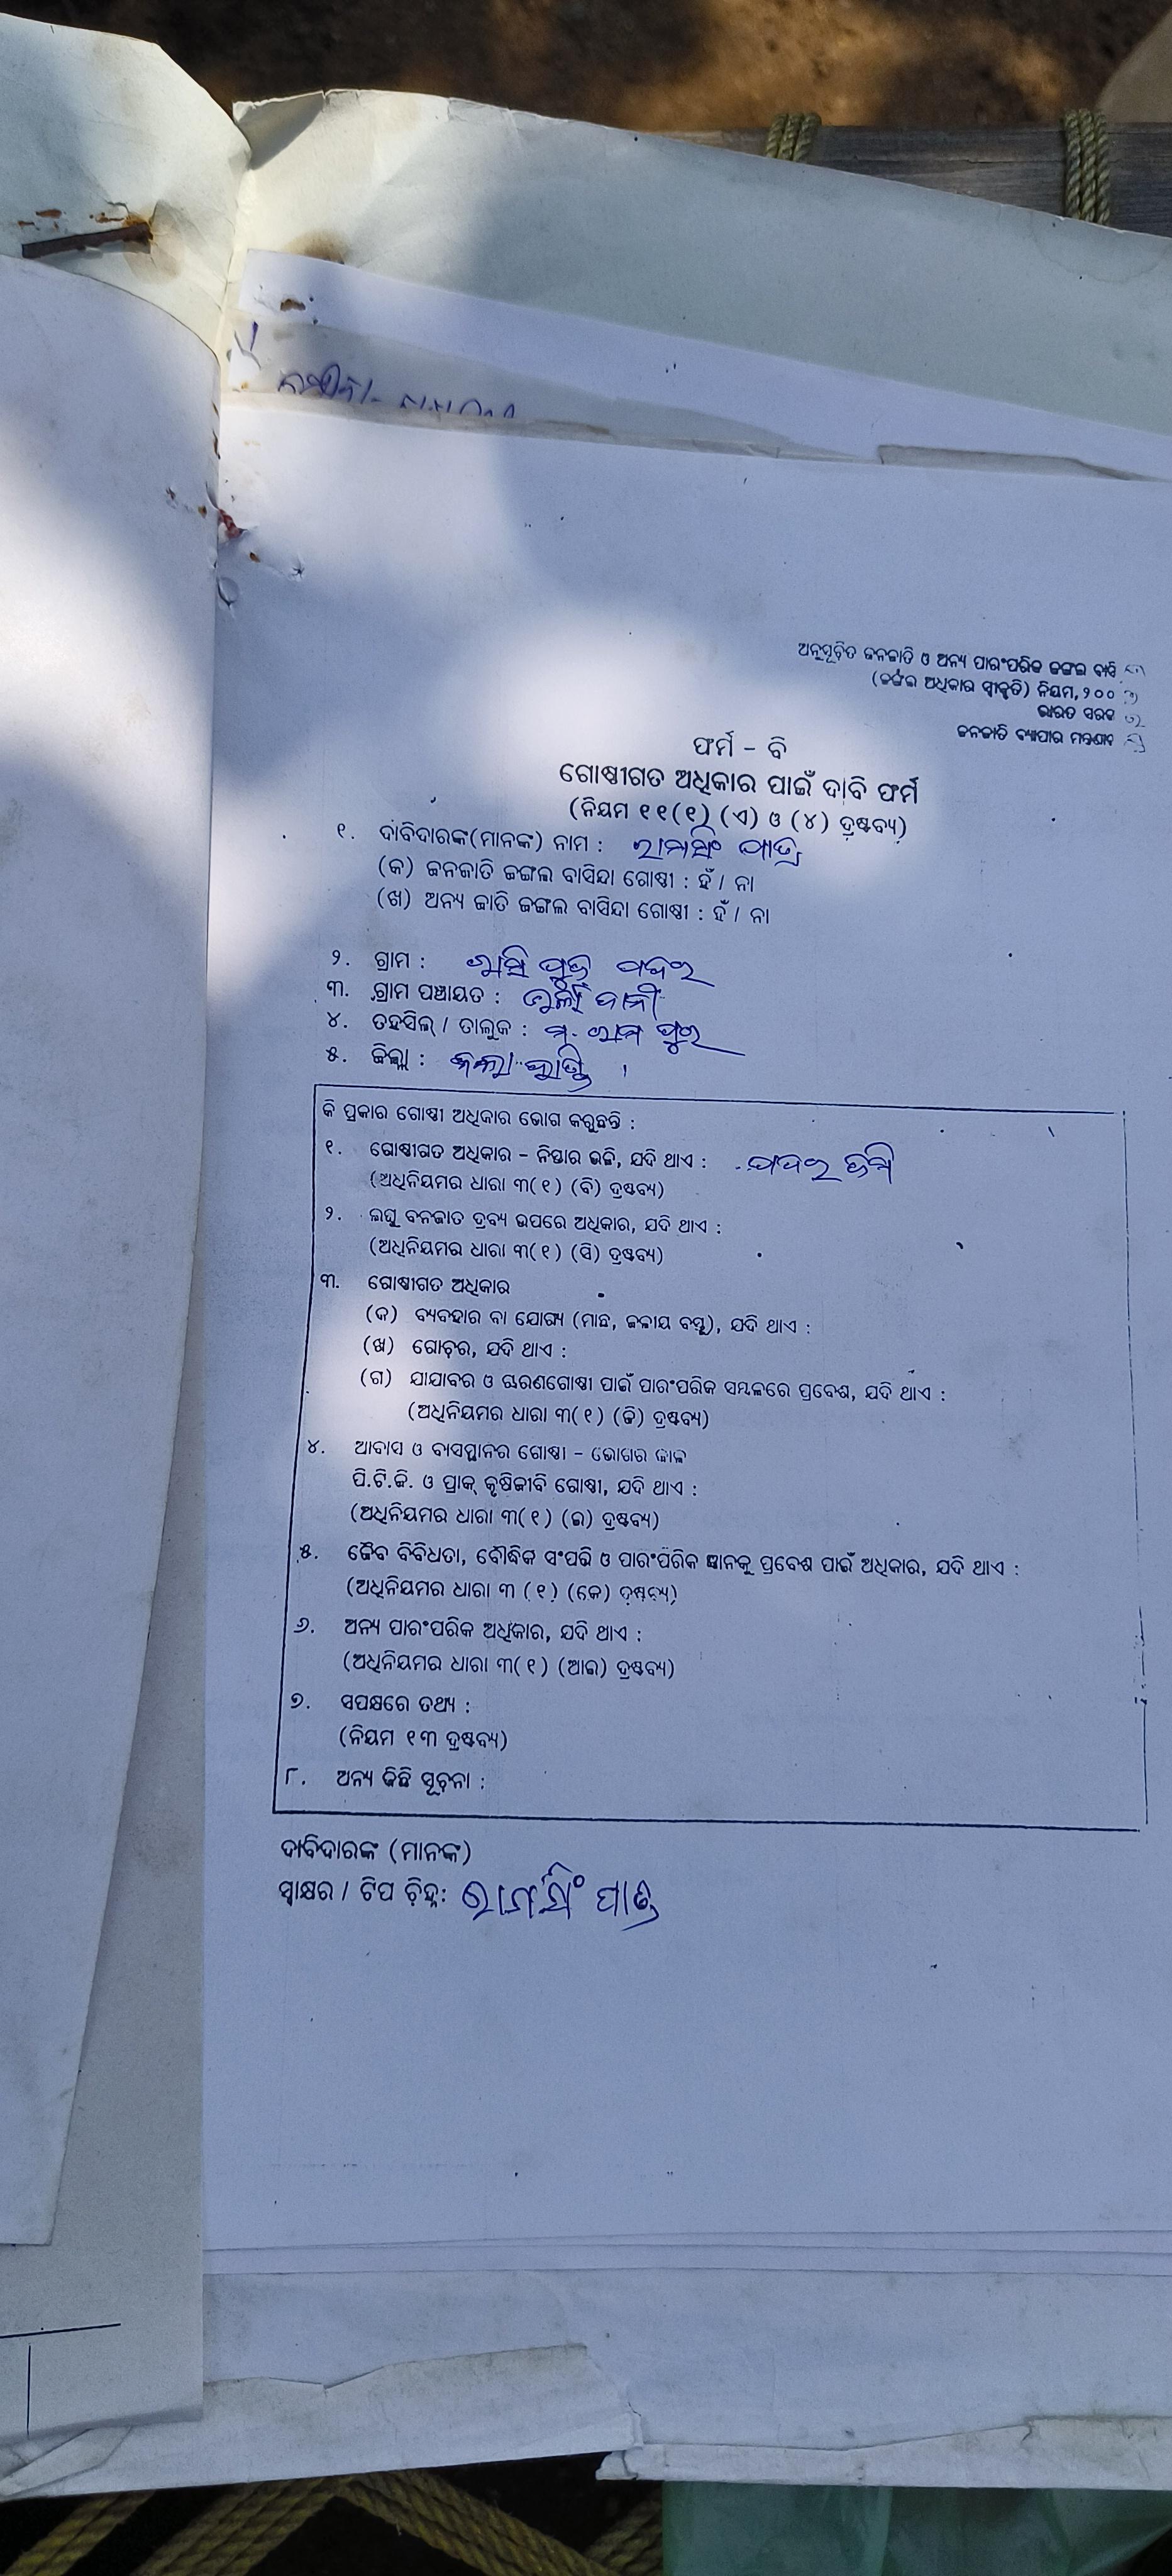 ଅନୁସୂଚିତ ଜନଜାତି ଓ ଅନ୍ୟ ପାରଂପରିକ ଜଙ୍ଗଲ ବାସି
(ଜଙ୍ଗଲ ଅଧିକାର ସ୍ୱୀକୃତି) ନିୟମ, ୨୦୦
ଭାରତ ସରକ
ଜନଜାତି ବ୍ୟାପାର ମନ୍ତ୍ରଣାଳ
ଫର୍ମ - ବି
ଗୋଷ୍ଠୀଗତ ଅଧିକାର ପାଇଁ ଦାବି ଫର୍ମ
(ନିୟମ ୧୧(୧) (ଏ) ଓ (୪) ଦ୍ରଷ୍ଟବ୍ୟ)
୧. ଦାବିଦାରଙ୍କ(ମାନଙ୍କ) ନାମ : ରାମସିଂ ପାତ୍ର
(କ) ଜନଜାତି ଜଙ୍ଗଲ ବାସିନ୍ଦା ଗୋଷ୍ଠୀ : ହଁ / ନା
(ଖ) ଅନ୍ୟ ଜାତି ଜଙ୍ଗଲ ବାସିନ୍ଦା ଗୋଷ୍ଠୀ : ହଁ / ନା
୨. ଗ୍ରାମ :
୩. ଗ୍ରାମ ପଞ୍ଚାୟତ :
୪. ତହସିଲ୍ / ତାଲୁକ : ମ. ରାମପୁର
୫. ଜିଲ୍ଲା : କଳାହାଣ୍ଡି ।
କି ପ୍ରକାର ଗୋଷ୍ଠୀ ଅଧିକାର ଭୋଗ କରୁଛନ୍ତି :
୧. ଗୋଷ୍ଠୀଗତ ଅଧିକାର - ନିସ୍ତାର ଭଳି, ଯଦି ଥାଏ :
(ଅଧିନିୟମର ଧାରା ୩(୧) (ବି) ଦ୍ରଷ୍ଟବ୍ୟ)
୨. ଲଘୁ ବନଜାତ ଦ୍ରବ୍ୟ ଉପରେ ଅଧିକାର, ଯଦି ଥାଏ :
(ଅଧିନିୟମର ଧାରା ୩(୧) (ସି) ଦ୍ରଷ୍ଟବ୍ୟ)
୩. ଗୋଷ୍ଠୀଗତ ଅଧିକାର
(କ) ବ୍ୟବହାର ବା ଯୋଗ୍ୟ (ମାଛ, ଜଳୀୟ ବସ୍ତୁ), ଯଦି ଥାଏ :
(ଖ) ଗୋଚ଼ର, ଯଦି ଥାଏ :
(ଗ) ଯାଯାବର ଓ ଚାରଣଗୋଷ୍ଠୀ ପାଇଁ ପାରଂପରିକ ସମ୍ବଳରେ ପ୍ରବେଶ, ଯଦି ଥାଏ :
(ଅଧିନିୟମର ଧାରା ୩(୧) (ଡି) ଦ୍ରଷ୍ଟବ୍ୟ)
୪. ଆବାସ ଓ ବାସସ୍ଥାନର ଗୋଷ୍ଠୀ - ଭୋଗର କାଳ
ପି.ଟି.ଜି. ଓ ପ୍ରାକ୍ କୃଷିଜୀବି ଗୋଷ୍ଠୀ, ଯଦି ଥାଏ :
(ଅଧିନିୟମର ଧାରା ୩(୧) (ଇ) ଦ୍ରଷ୍ଟବ୍ୟ)
୫. ଜୈବ ବିବିଧତା, ବୌଦ୍ଧିକ ସଂପତ୍ତି ଓ ପାରଂପରିକ ଜ୍ଞାନକୁ ପ୍ରବେଶ ପାଇଁ ଅଧିକାର, ଯଦି ଥାଏ :
(ଅଧିନିୟମର ଧାରା ୩ (୧) (କେ) ଦ୍ରଷ୍ଟବ୍ୟ)
୬. ଅନ୍ୟ ପାରଂପରିକ ଅଧିକାର, ଯଦି ଥାଏ :
(ଅଧିନିୟମର ଧାରା ୩(୧) (ଆଇ) ଦ୍ରଷ୍ଟବ୍ୟ)
୭. ସପକ୍ଷରେ ତଥ୍ୟ :
(ନିୟମ ୧୩ ଦ୍ରଷ୍ଟବ୍ୟ)
୮. ଅନ୍ୟ କିଛି ସୂଚ଼ନା :
ଦାବିଦାରଙ୍କ (ମାନଙ୍କ)
ସ୍ୱାକ୍ଷର / ଟିପ ଚ଼ିହ୍ନ: ରାମସିଂ ପାତ୍ର